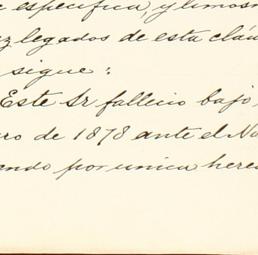 especifica, y limosn
legados de esta cláu
sigue:
Este Sr fallecio bajo
ro de 1878 ante el No
ando por unica here